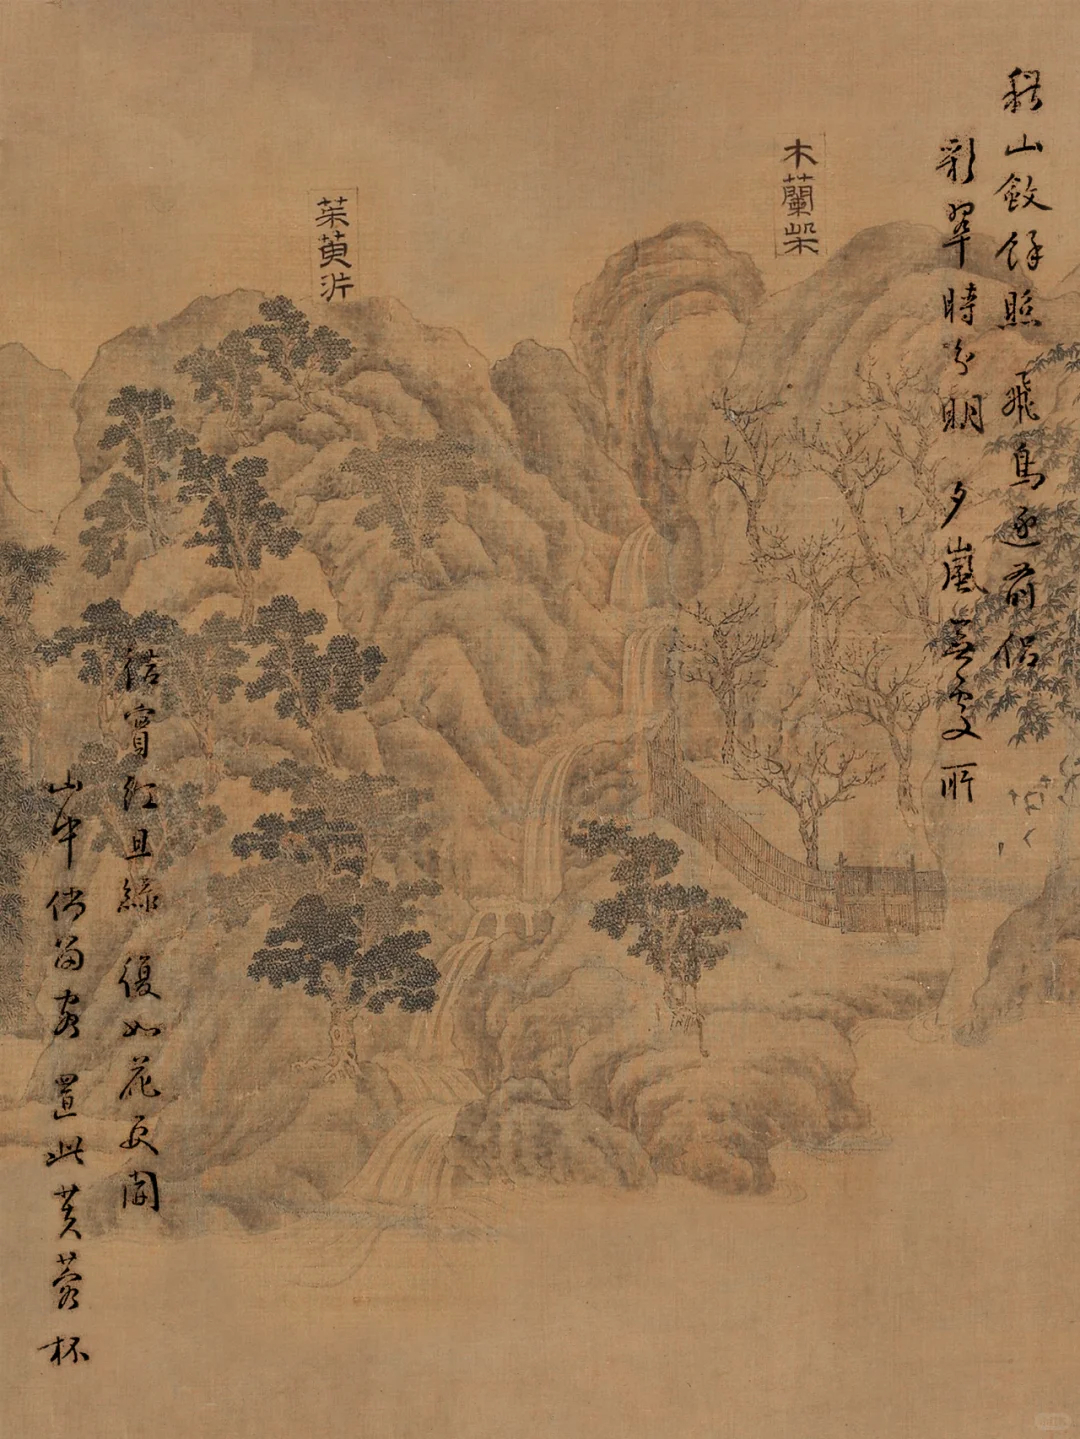 秋山斂餘照 飛鳥逐前侶
彩翠時分明 夕嵐無處所
木蘭柴
茱萸沜
結實紅且綠 復如花更開
山中倘留客 置此芙蓉杯